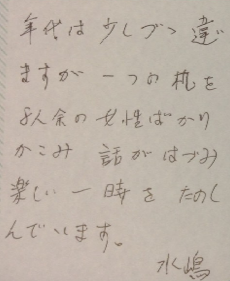 年代は少しづつ違い
ますが一つの机を
8人余の女性ばかり
かこみ 話がはづみ
楽しい一時を たのし
んでいます。
水嶋